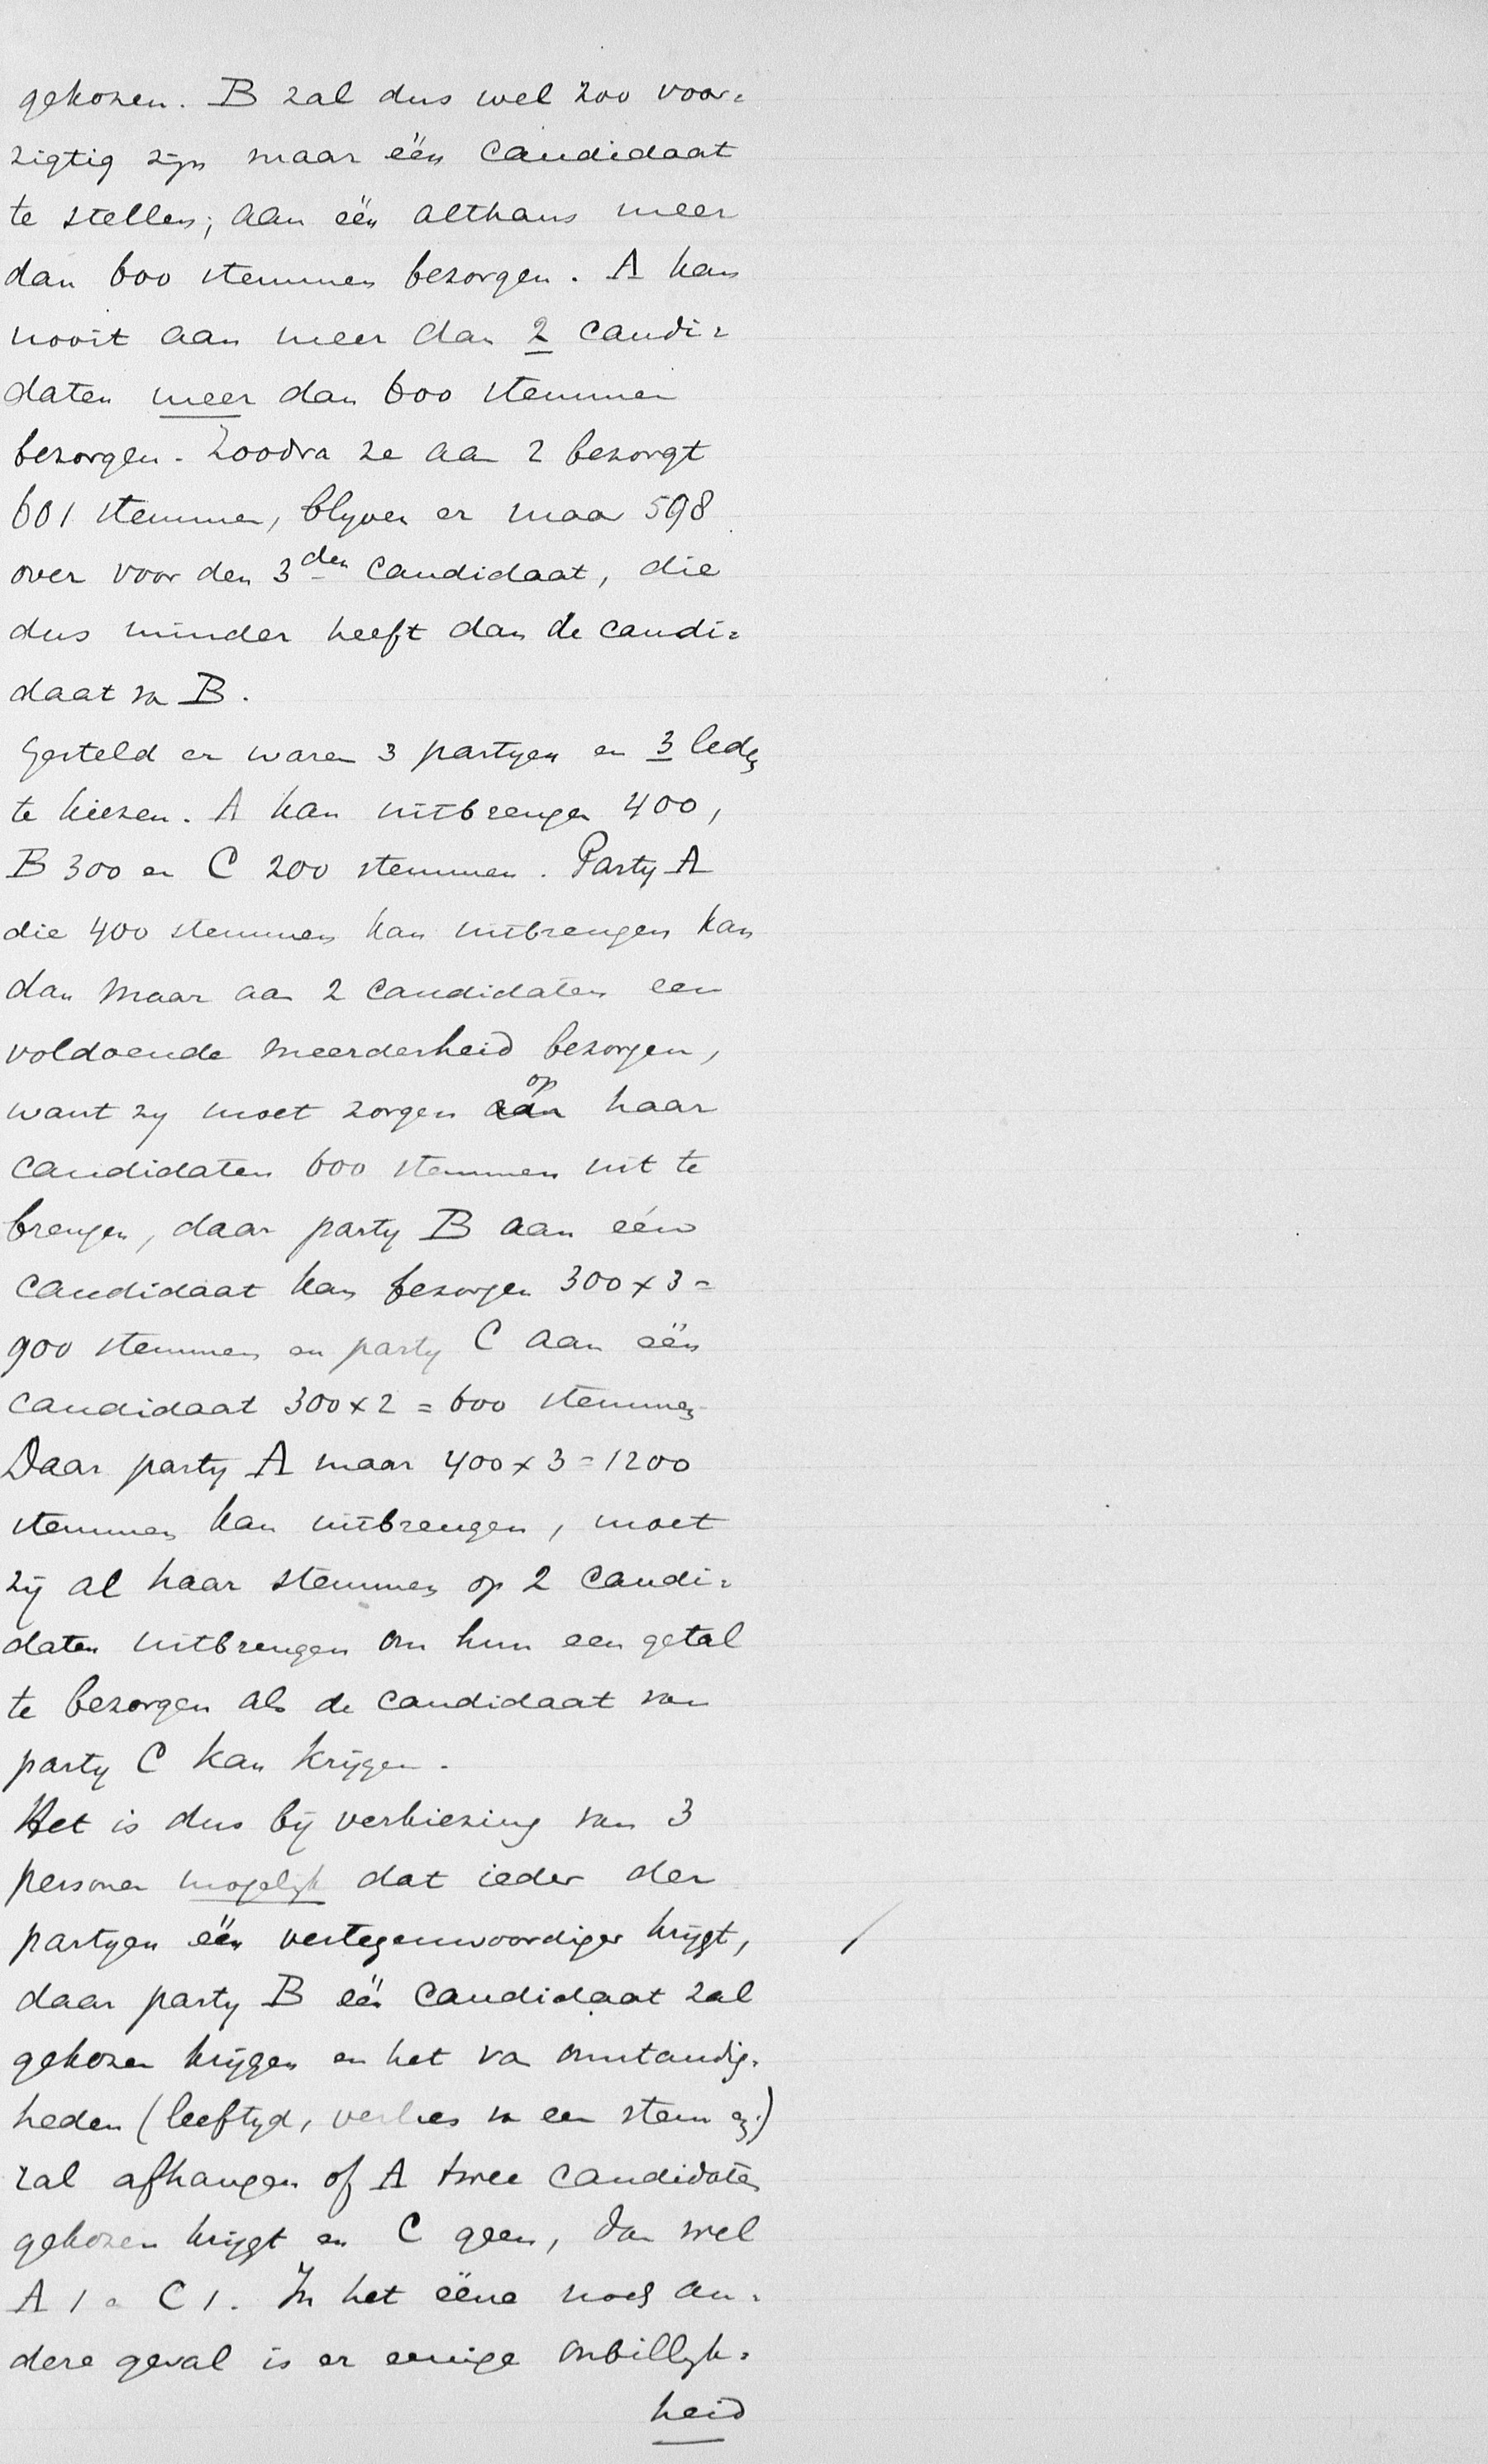 gekozen. B zal dus wel zoo voor=
zigtig zijn maar één candidaat
te stellen; aan één althans meer
dan 600 stemmen bezorgen. A kan
nooit aan meer dan 2 candi=
daten meer dan 600 stemmen
bezorgen. Zoodra ze aan 2 bezorgt
601 stemmen, blyven er maar 598
over voor den 3den candidaat, die
dus minder heeft dan de candi=
daat v. B.
Gesteld er waren 3 partyen en 3 leden
te kiezen. A kan uitbrengen 400,
B 300 en C 200 stemmen. Party A
die 400 stemmen kan uitbrengen kan
dan maar aan 2 candidaten een
voldoende meerderheid bezorgen,
want zy moet zorgen aan op haar
candidaten 600 stemmen uit te
brengen, daar party B aan één
candidaat kan bezorgen 300 x 3 =
900 stemmen en party C aan één
candidaat 300 x 2 = 600 stemmen
Daar party A maar 400 x 3 = 1200
stemmen kan uitbrengen, moet
zij al haar stemmen op 2 candi=
daten uitbrengen om hun een getal
te bezorgen als de candidaat van
party C kan krijgen.
Het is dus bij verkiezing van 3
personen mogelyk dat ieder der
partyen één vertegenwoordiger krijgt, /
daar party B één candidaat zal
gekozen krijgen en het van omstandig=
heden (leeftyd, verlies v. een stem enz.)
zal afhangen of A twee candidaten
gekozen krijgt en C geen, dan wel
A 1 en C 1. In het ééne noch an=
dere geval is er eenige onbillyk=
heid